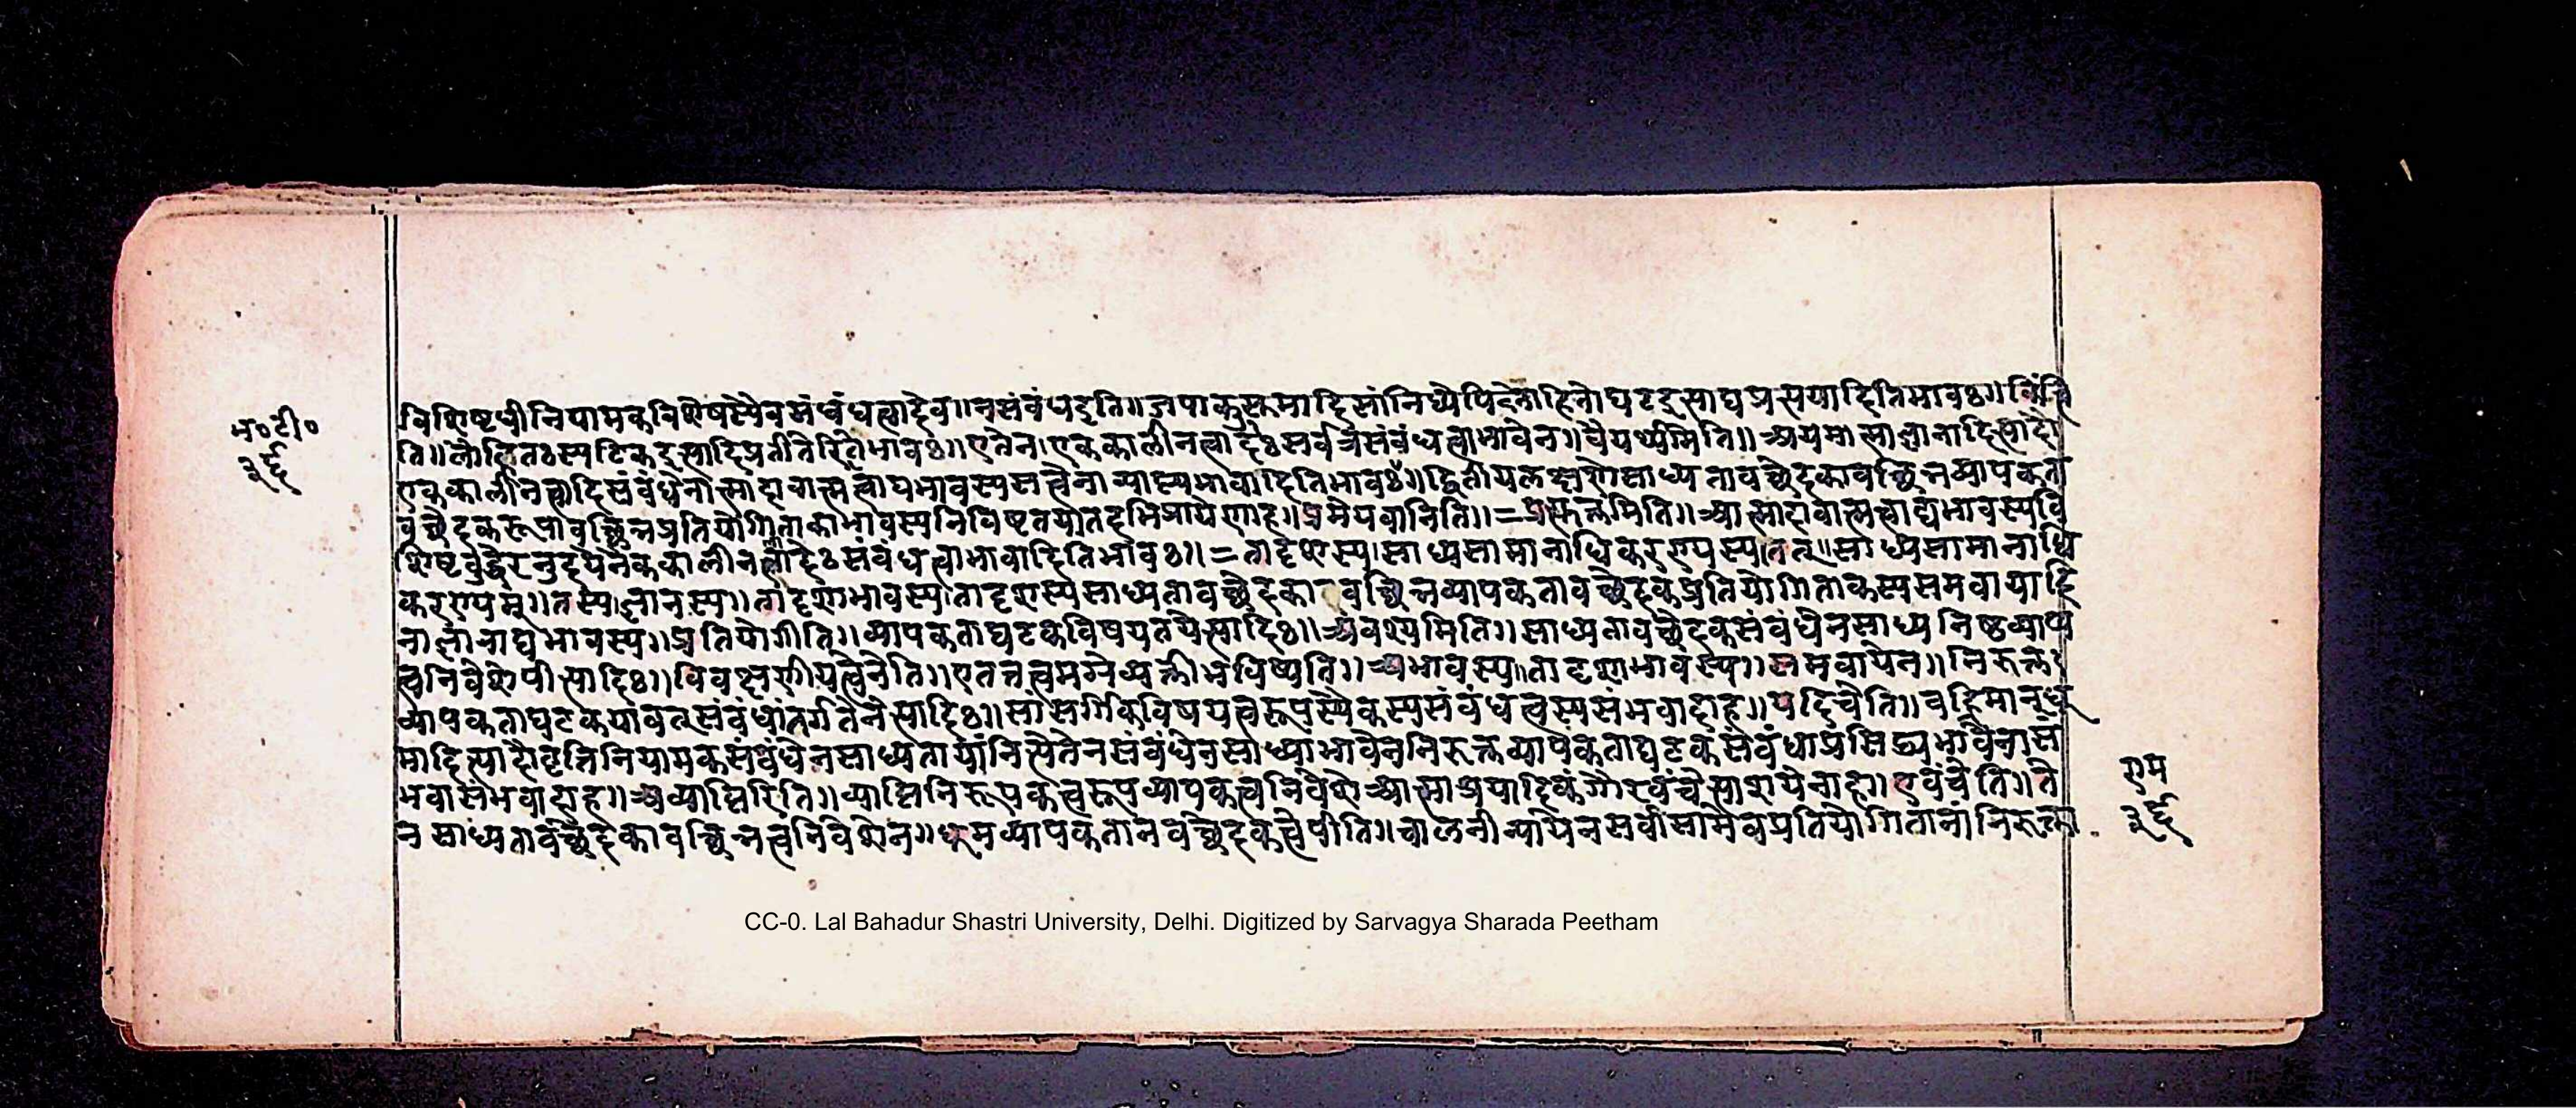 म॰टी॰
३६
विशिष्टधीनियामकविशेषस्यैवसंबंधत्वादेव॥नसंबंधइति॥जपाकुसुमादिसांनिध्येपि
ति॥लोहितःस्फटिकइत्यादिप्रतीतेरितिभावः॥एतेन।एककालीनत्वादेःसर्वत्रैसंबंधत्वाभावेन॥वैयर्थ्यमिति॥अयमात्माज्ञानादित्यादौ
एककालीनत्वादिसंबंधेनात्माद्वितीयलक्षणेसाध्यतावच्छेदकावच्छिन्नव्यापकता
वच्छेदकरूपावच्छिन्नप्रतियोगिताकाभावस्यनिविष्टतयातदभिप्रायेणाह॥प्रमेयवानिति॥=प्रसक्तमिति॥
शिष्टबुद्धेरनुदयेनैककालीनत्वादेःसंबंधत्वाभावादितिभावः॥=तादृशस्य।साध्यसामानाधिकरण्यस्य।तत्॥साध्यसामानाधि
करण्यम्॥तस्य।ज्ञानस्य॥तादृशाभावस्य।तादृशस्यसाध्यतावच्छेदकावच्छिन्नव्यापकतावच्छेदकप्रतियोगिताकस्यसमवायादि
नाज्ञानाद्यभावस्य॥प्रतियोगीति॥व्यापकताघटकविषयतयेत्यादिः॥अवश्यमिति॥साध्यतावच्छेदकसंबंधेनसाध्यनिष्ठव्याप्य
त्वनिवेशेपीत्यादिः॥विवक्षणीयत्वेनेति॥एतत्तत्वमग्रेव्यक्तीभविष्यति॥अभावस्य॥तादृशाभावस्य॥समवायेन॥निरूक्त
व्यापकताघटकयावत्संबंधांतर्गतेनेत्यादिः॥सांसर्गिकविषयत्वरूपस्यैकस्यसंबंधत्वस्यसंभवादाह॥यदिचेति॥वह्निमान्धू
मादित्यादौवृत्तिनियामकसंबंधेनसाध्यतायांनित्यैतेनसंबंधेनसाध्याभावेननिरूक्तव्यापकताघटकसंबंधाप्रसिद्ध्यभावेनासं
भवासंभवादाह॥अव्याप्तिरिति॥व्याप्तिनिरूपकत्वरूपव्यापकत्वनिवेशेआत्माश्रयादिकंगौरवंचेत्याशयेनाह॥एवंचेति॥ते
न साध्यतावच्छेदकावच्छिन्नत्वनिवेशेन॥धूमव्यापकतानवच्छेदकत्वेपीति॥चालनीन्यायेनसर्वासामेवप्रतियोगितानांनिरूक्ता
राम
३६
CC-0. Lal Bahadur Shastri University, Delhi. Digitized by Sarvagya Sharada Peetham